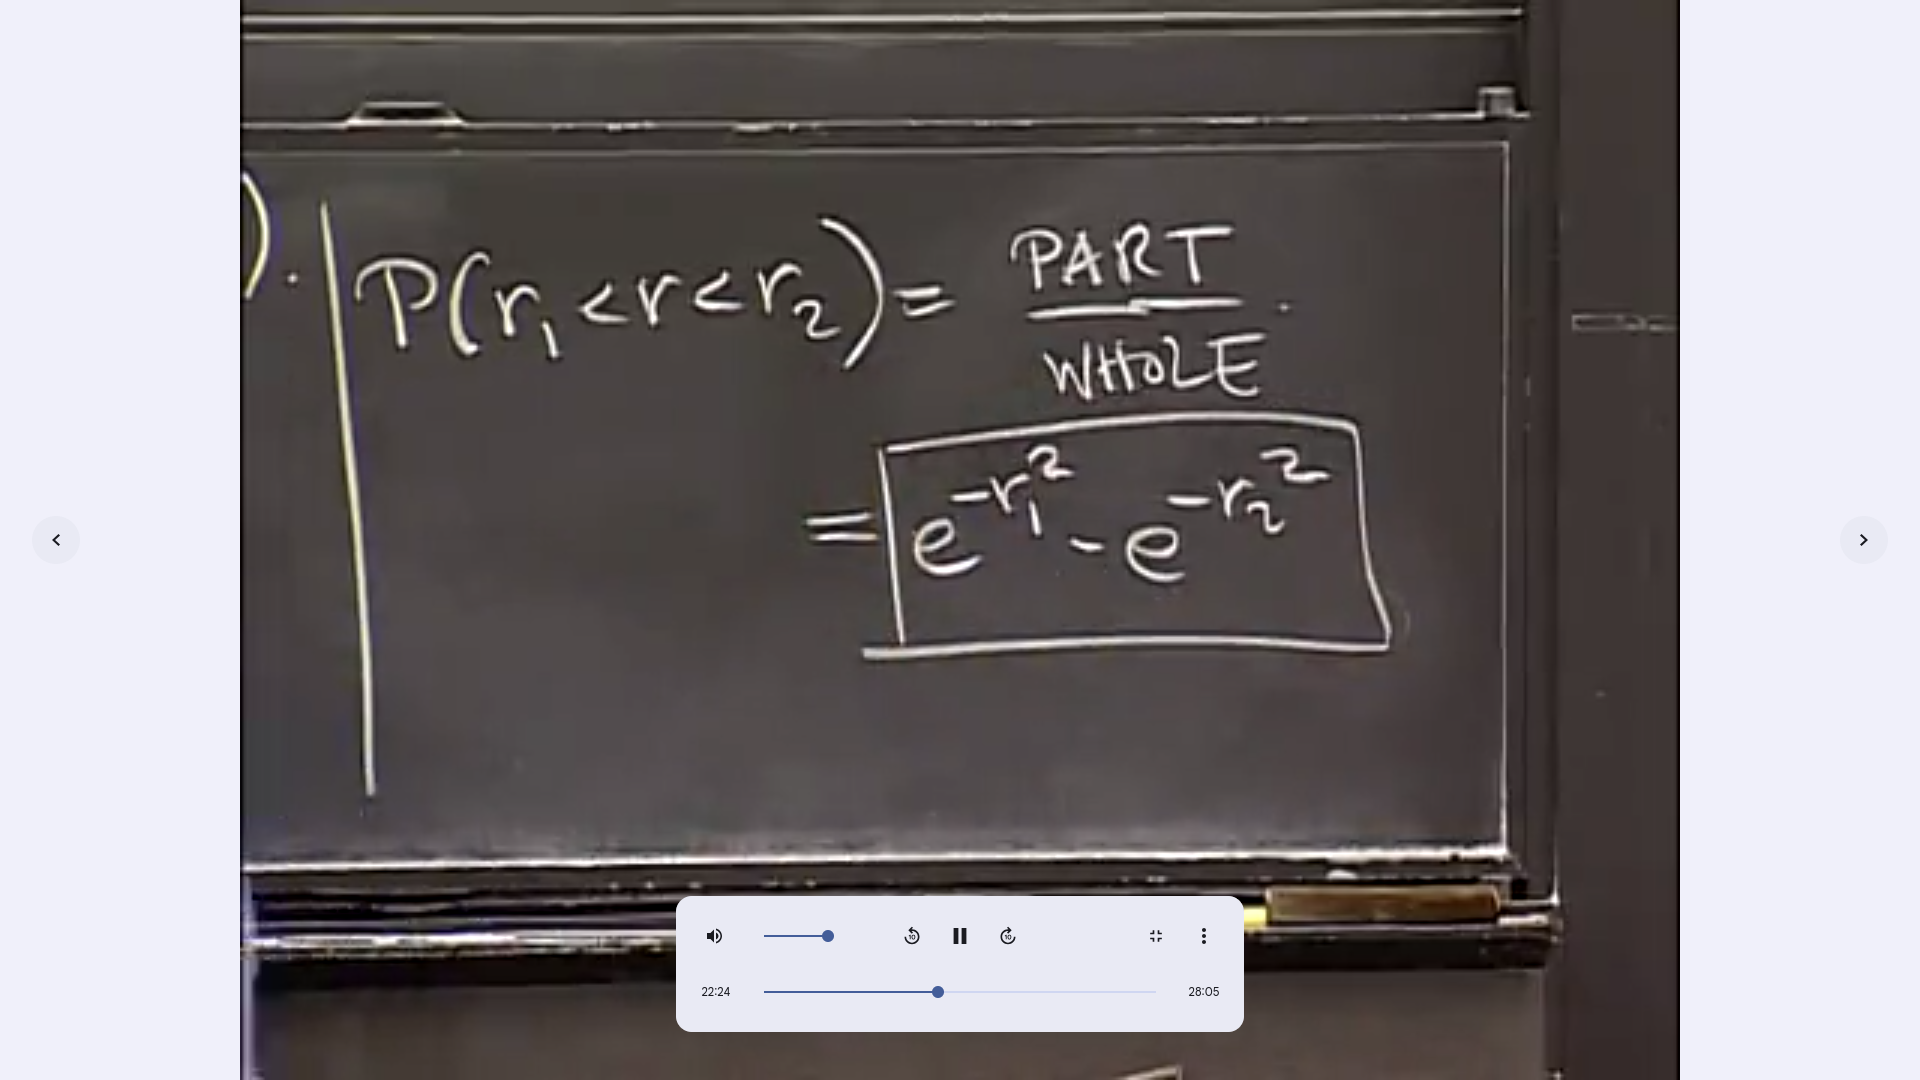 ). P(r₁<r<r₂) = PART / WHOLE .
= e^{-r₁²} - e^{-r₂²}
10 10
22:24 28:05